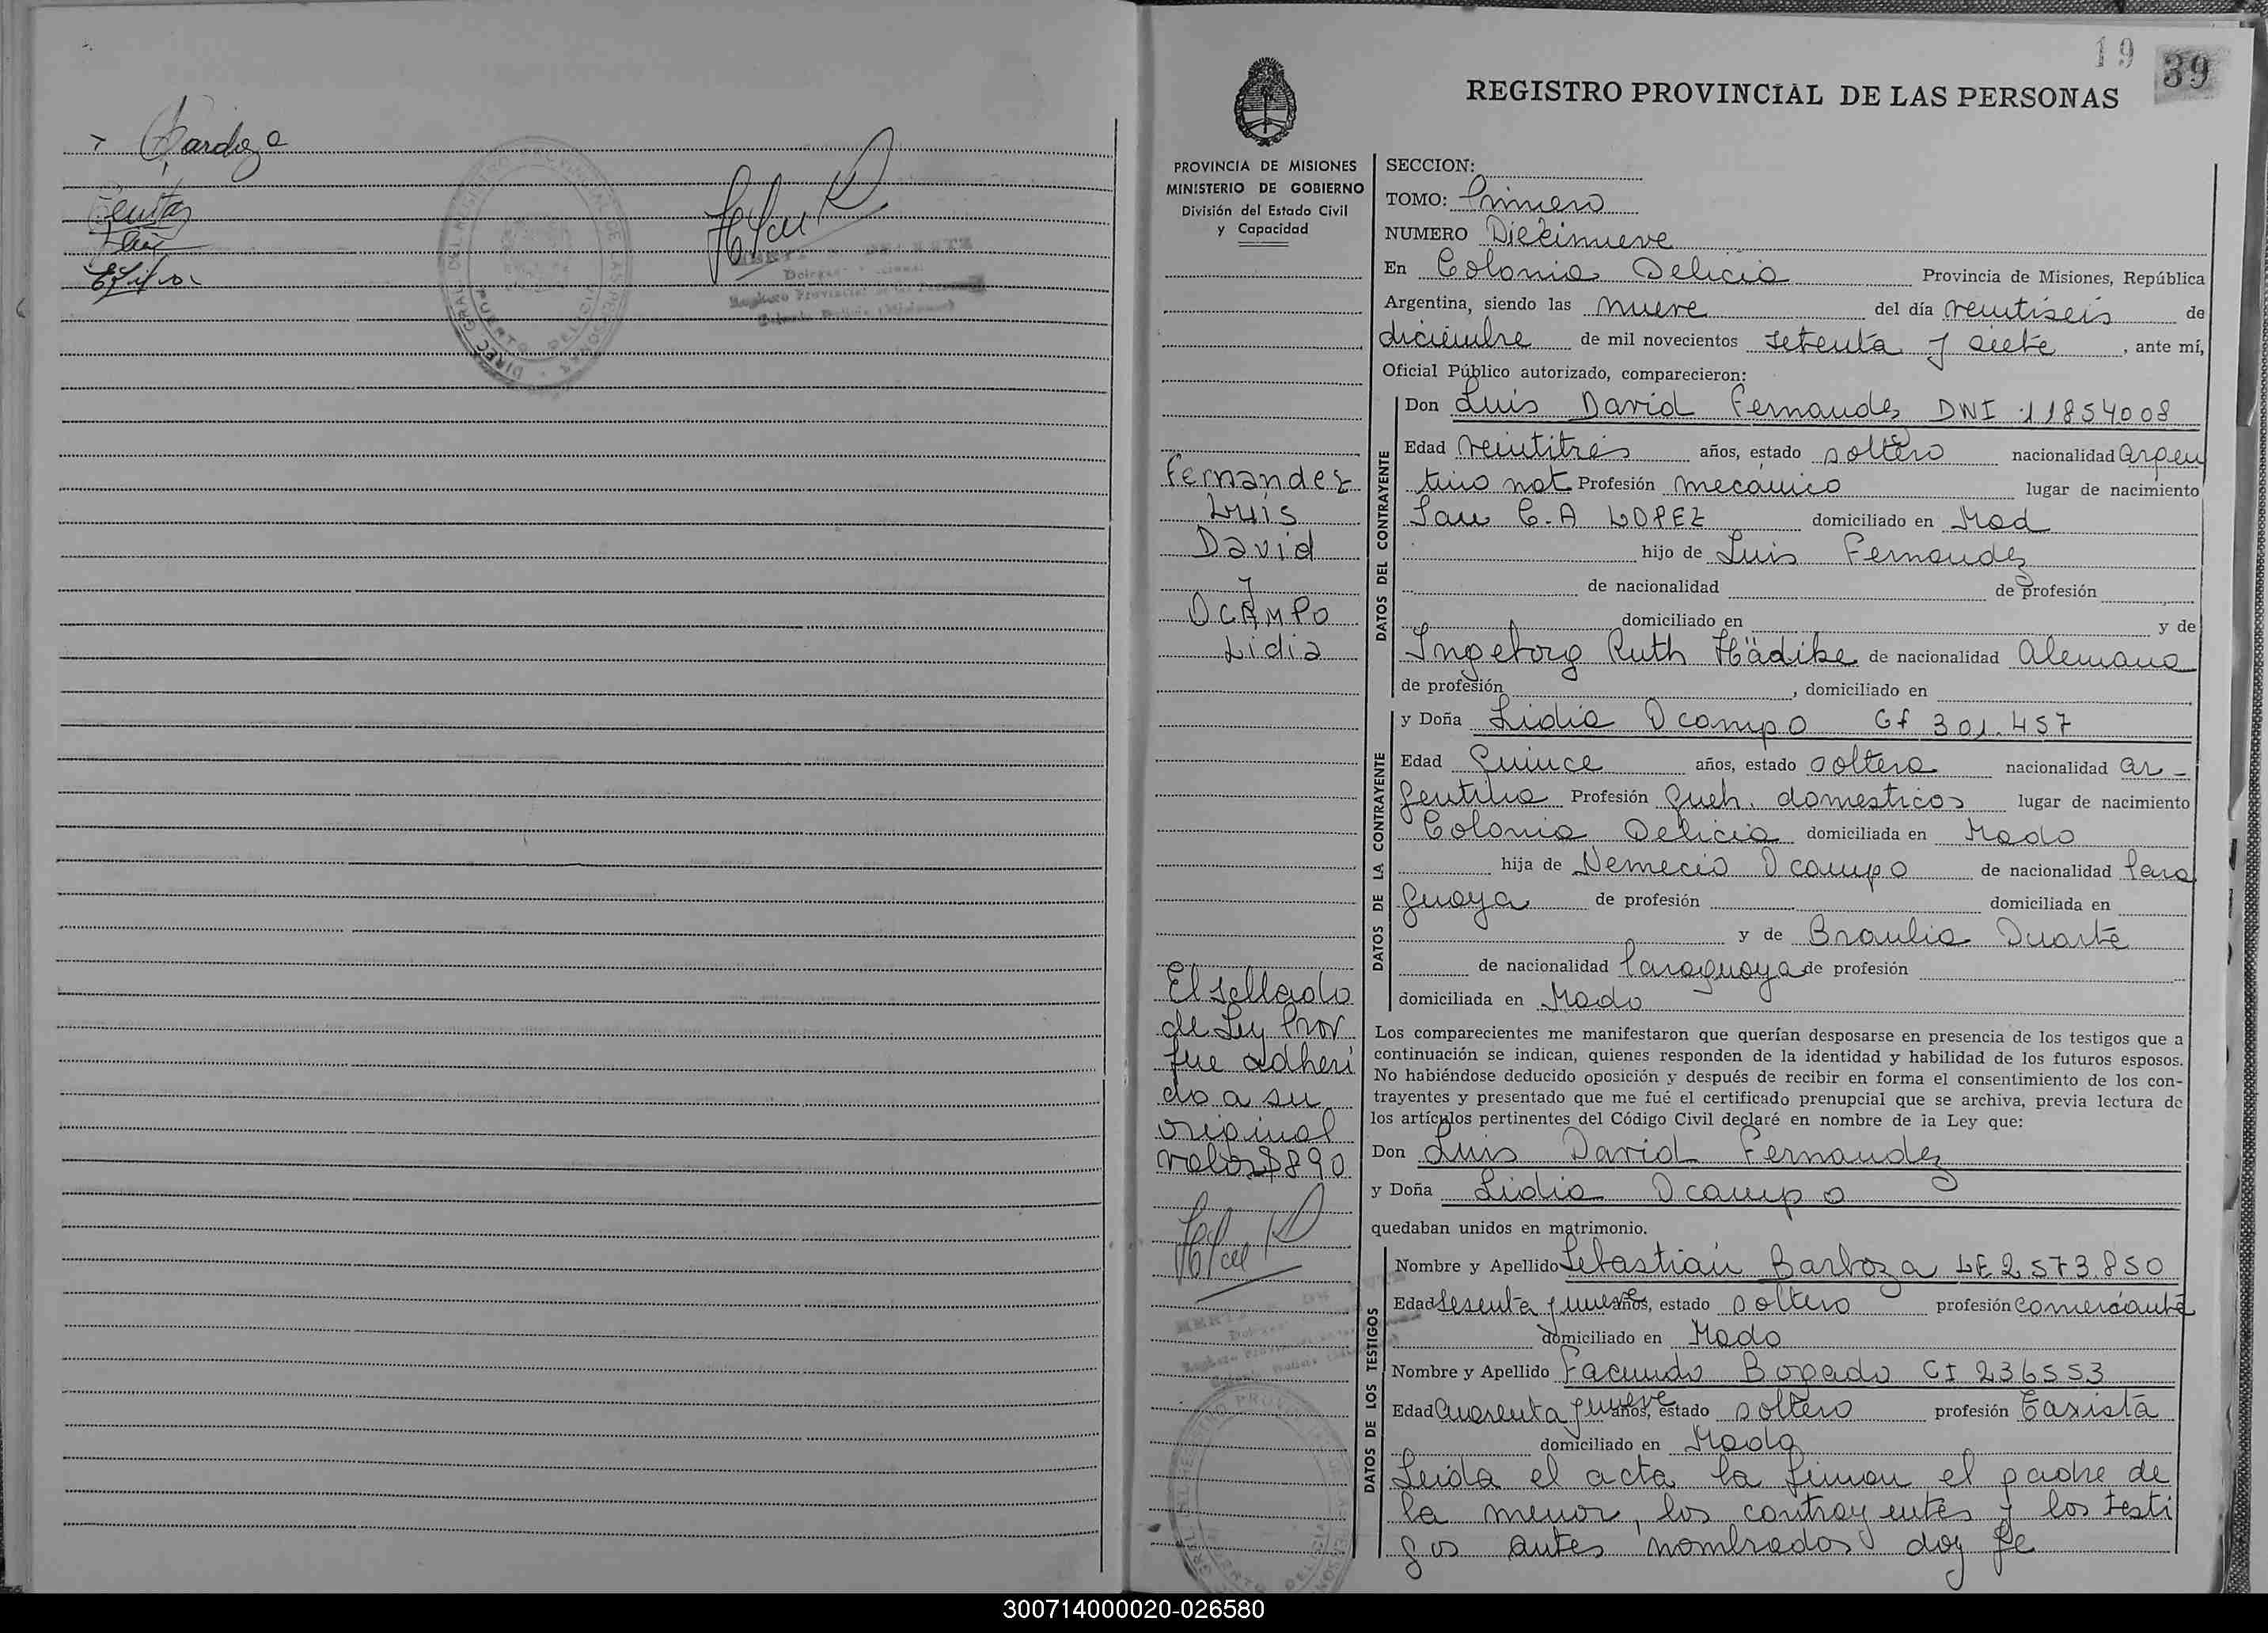 Cardozo
Benitez
Silva
19
39
REGISTRO PROVINCIAL DE LAS PERSONAS
PROVINCIA DE MISIONES
MINISTERIO DE GOBIERNO
División del Estado Civil
y Capacidad
SECCION:
TOMO: Primero
NUMERO Diecinueve
En Colonia Delicia Provincia de Misiones, República
Argentina, siendo las nueve del día veintiseis de
diciembre de mil novecientos setenta y siete, ante mí,
Oficial Público autorizado, comparecieron:
DATOS DEL CONTRAYENTE
Don Luis David Fernandez DNI 11854008
Edad veintitres años, estado soltero nacionalidad argen
tino nat Profesión mecanico lugar de nacimiento
San C.A LOPEZ domiciliado en Mad
hijo de Luis Fernandez
de nacionalidad de profesión
domiciliado en y de
Ingeborg Ruth Hädike de nacionalidad Alemana
de profesión, domiciliado en
Fernandez
Luis
David
y
OCAMPO
Lidia
DATOS DE LA CONTRAYENTE
y Doña Lidia Ocampo Cf 301.457
Edad Quince años, estado soltera nacionalidad ar-
gentina Profesión Queh. domesticos lugar de nacimiento
Colonia Delicia domiciliada en Mado
hija de Nemecio Ocampo de nacionalidad Para
guaya de profesión domiciliada en
y de Braulia Duarte
de nacionalidad Paraguaya de profesión
domiciliada en Mado
El sellado
de Ley Prov
fue adheri
do a su
original
valor $890
Los comparecientes me manifestaron que querían desposarse en presencia de los testigos que a
continuación se indican, quienes responden de la identidad y habilidad de los futuros esposos.
No habiéndose deducido oposición y después de recibir en forma el consentimiento de los con-
trayentes y presentado que me fué el certificado prenupcial que se archiva, previa lectura de
los artículos pertinentes del Código Civil declaré en nombre de la Ley que:
Don Luis David Fernandez
y Doña Lidia Ocampo
quedaban unidos en matrimonio.
DATOS DE LOS TESTIGOS
Nombre y Apellido Sebastian Barboza LE 2.573.850
Edad Sesenta y nueve años, estado soltero profesión comerciante
domiciliado en Mado
Nombre y Apellido Facundo Bogado CI 236553
Edad Cuarenta y nueve años, estado soltero profesión Taxista
domiciliado en Mado
Leida el acta la firman el padre de
la menor, los contrayentes y los testi
gos antes nombrados doy fe
300714000020-026580